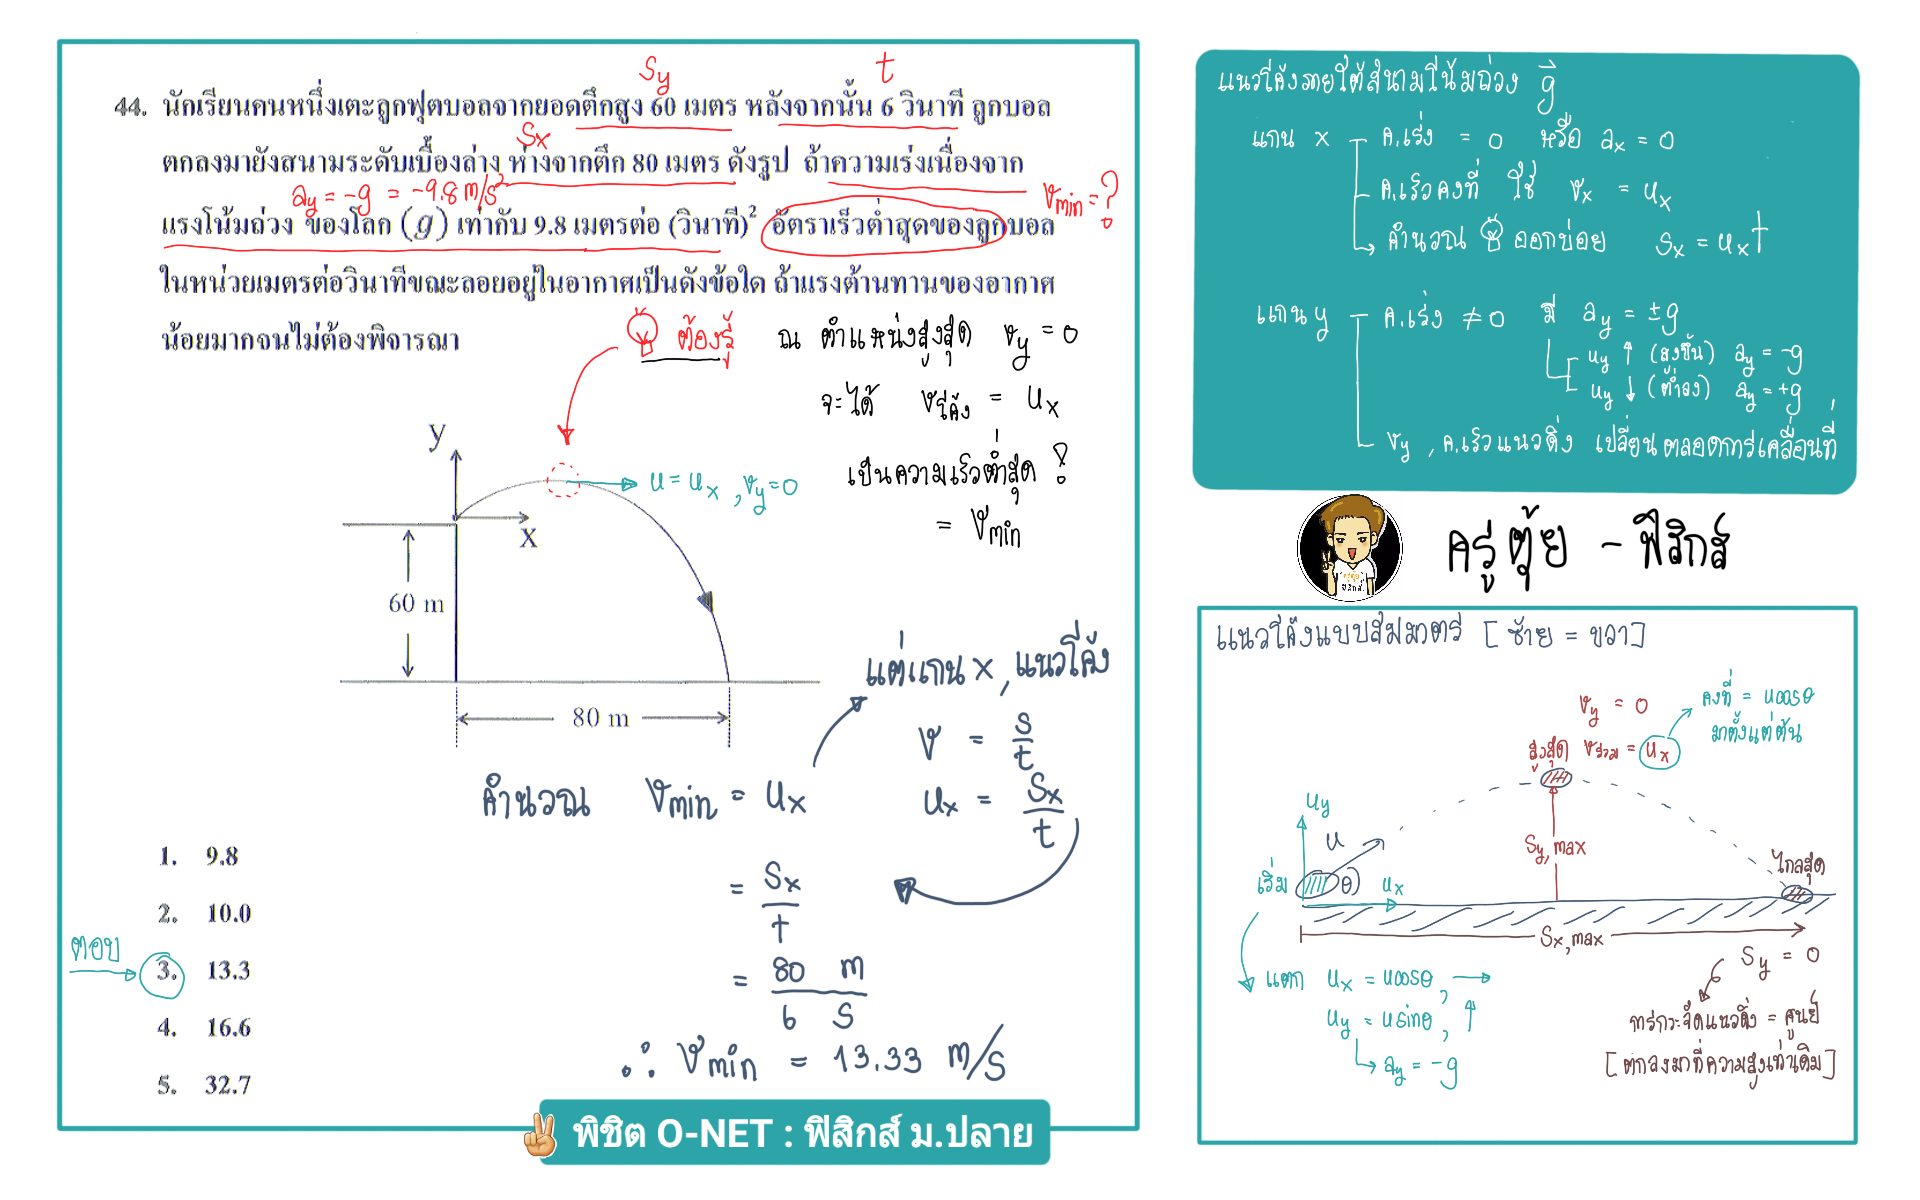 s_y
t
44. นักเรียนคนหนึ่งเตะลูกฟุตบอลจากยอดตึกสูง 60 เมตร หลังจากนั้น 6 วินาที ลูกบอล
s_x
ตกลงมายังสนามระดับเบื้องล่าง ห่างจากตึก 80 เมตร ดังรูป ถ้าความเร่งเนื่องจาก
a_y = -g = -9.8 m/s²
v_min = ?
แรงโน้มถ่วง ของโลก (g) เท่ากับ 9.8 เมตรต่อ (วินาที)² อัตราเร็วต่ำสุดของลูกบอล
ในหน่วยเมตรต่อวินาทีขณะลอยอยู่ในอากาศเป็นดังข้อใด ถ้าแรงต้านทานของอากาศ
น้อยมากจนไม่ต้องพิจารณา
ต้องรู้
ณ ตำแหน่งสูงสุด v_y = 0
จะได้ v_โค้ง = u_x
เป็นความเร็วต่ำสุด !
= v_min
y
x
u = u_x , v_y = 0
60 m
80 m
แต่แกน x , แนวโค้ง
v = s/t
u_x = s_x/t
คำนวณ v_min = u_x
= s_x/t
= 80 m / 6 s
∴ v_min = 13.33 m/s
1. 9.8
2. 10.0
ตอบ
3. 13.3
4. 16.6
5. 32.7
พิชิต O-NET : ฟิสิกส์ ม.ปลาย
แนวโค้งภายใต้สนามโน้มถ่วง g
แกน x ค.เร่ง = 0 หรือ a_x = 0
ค.เร็วคงที่ ใช้ v_x = u_x
คำนวณ ออกบ่อย s_x = u_x t
แกน y ค.เร่ง ≠ 0 มี a_y = ±g
u_y ↑ (สูงขึ้น) a_y = -g
u_y ↓ (ต่ำลง) a_y = +g
v_y , ค.เร็วแนวดิ่ง เปลี่ยนตลอดการเคลื่อนที่
ครูตุ้ย - ฟิสิกส์
แนวโค้งแบบสมมาตร [ ซ้าย = ขวา ]
v_y = 0
คงที่ = u cosθ
มาตั้งแต่ต้น
สูงสุด v_รวม = u_x
u_y
u
s_y,max
ไกลสุด
เริ่ม
θ
u_x
s_x,max
s_y = 0
แตก u_x = u cosθ , →
u_y = u sinθ , ↑
a_y = -g
การกระจัดแนวดิ่ง = ศูนย์
[ ตกลงมาที่ความสูงเท่าเดิม ]